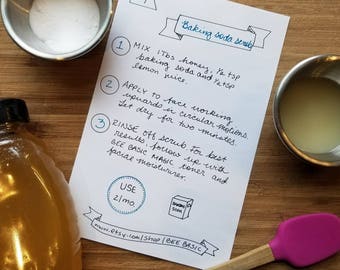 Baking soda scrub
1 MIX 1 Tbs honey, 1/2 tsp
baking soda and 1/2 tsp
lemon juice.
2 APPLY to face working
upwards in circular motions.
Let dry for two minutes.
3 RINSE off scrub. For best
results follow up with
BEE BASIC MAGIC toner and
facial moisturizer.
USE
2/mo.
Baking
Soda
www.etsy.com/shop/BEE BASIC